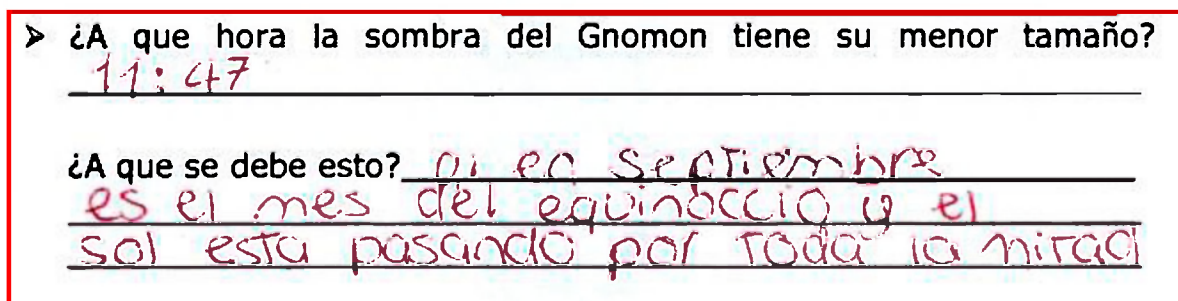 ➤ ¿A que hora la sombra del Gnomon tiene su menor tamaño?
11:47
¿A que se debe esto? en Septiembre
es el mes del equinoccio y el
sol esta pasando por toda la mitad